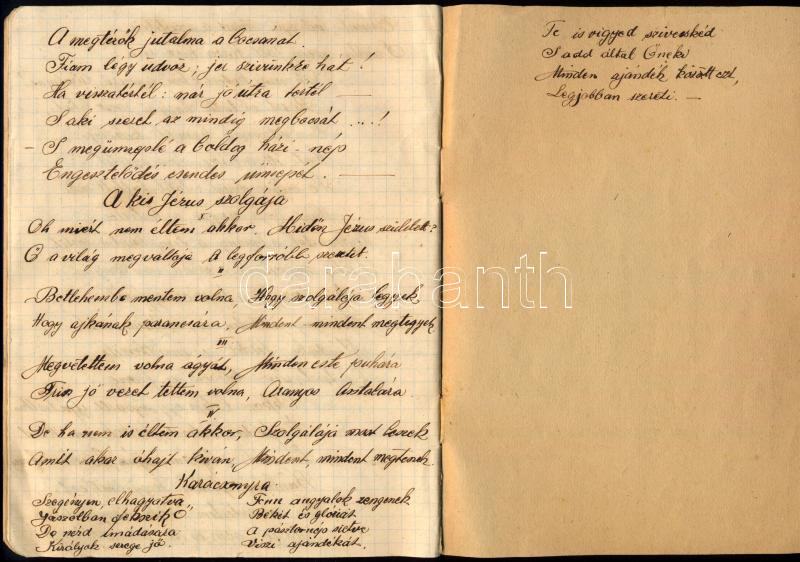 A megtérők jutalma a bocsánat.
Fiam légy üdvöz, jer szivünkre hát!
Ha visszatértél: már jó útra tértél —
S aki szeret az mindig megbocsát ...!
— S megünneplé a boldog házi-nép
Engesztelődés csendes ünnepét. —
A kis Jézus szolgája
I
Oh miért nem éltem akkor, Midőn Jézus született?
Ő a világ megváltója A legforróbb szeretet.
II
Betlehembe mentem volna, Hogy szolgálója legyek
Hogy ajkának parancsára, Mindent-mindent megtegyek
III
Megvetettem volna ágyát, Minden este puhára
Friss jó vizet tettem volna, Aranyos asztalára.
IV
De ha nem is éltem akkor, Szolgálója most leszek
Amit akar óhajt kiván, Mindent, mindent megteszek.
Karácsonyra.
Szegényen, elhagyatva
Jászolban fekszik Ő
De nézd imádására
Királyok serege jő.
Fenn angyalok zengenek
Békét és glóriát.
A pásztornép sietve
Viszi ajándékát.
Te is vigyed szivecskéd
S add által Őneki
Minden ajándék között ezt,
Legjobban szereti. —
darabanth